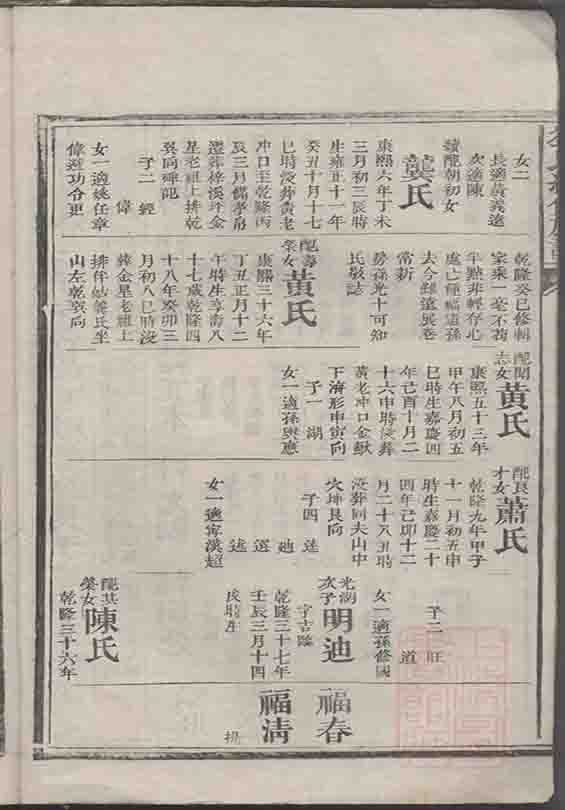 女二
長適黃義遠
次適陳
續配朝初女
龔氏
康熙六年丁未
三月初三辰時
生雍正十一年
癸丑十月十七
巳時沒葬黃老
冲口至乾隆丙
辰三月備孝帛
遷葬梓溪坪金
星老祖上排乾
巽向碑記
子二 經
偉
女一適姚任章
偉遊功令更
乾隆癸巳修輯
家乘一毫不苟
年點非輕存心
處亡種福遺孫
去今雖遠展卷
常新
房孫光十可知
氏敬誌
配壽
榮女
黃氏
康熙三十六年
丁丑正月十二
午時生享壽八
十七歲乾隆四
十八年癸卯三
月初八巳時沒
葬金星老祖上
排伴姑龔氏坐
山左乾巽向
配聞
志女
黃氏
康熙五十三年
甲午八月初五
巳時生嘉慶四
年己酉十月二
十六申時沒葬
黃老冲口金鰍
下濟形申寅向
子一 湖
女一適孫興應
配良
才女
蕭氏
乾隆九年甲子
十一月初五申
時生嘉慶二十
四年己卯十二
月二十八丑時
沒葬同夫山中
穴坤艮向
子四 迷
迪
選
述
女一適寗漢超
子二 旺
道
女一適孫修國
光湖
次子
明迪
字吉臨
乾隆三十七年
壬辰三月十四
戌時生
配其
榮女
陳氏
乾隆三十六年
福春
福清